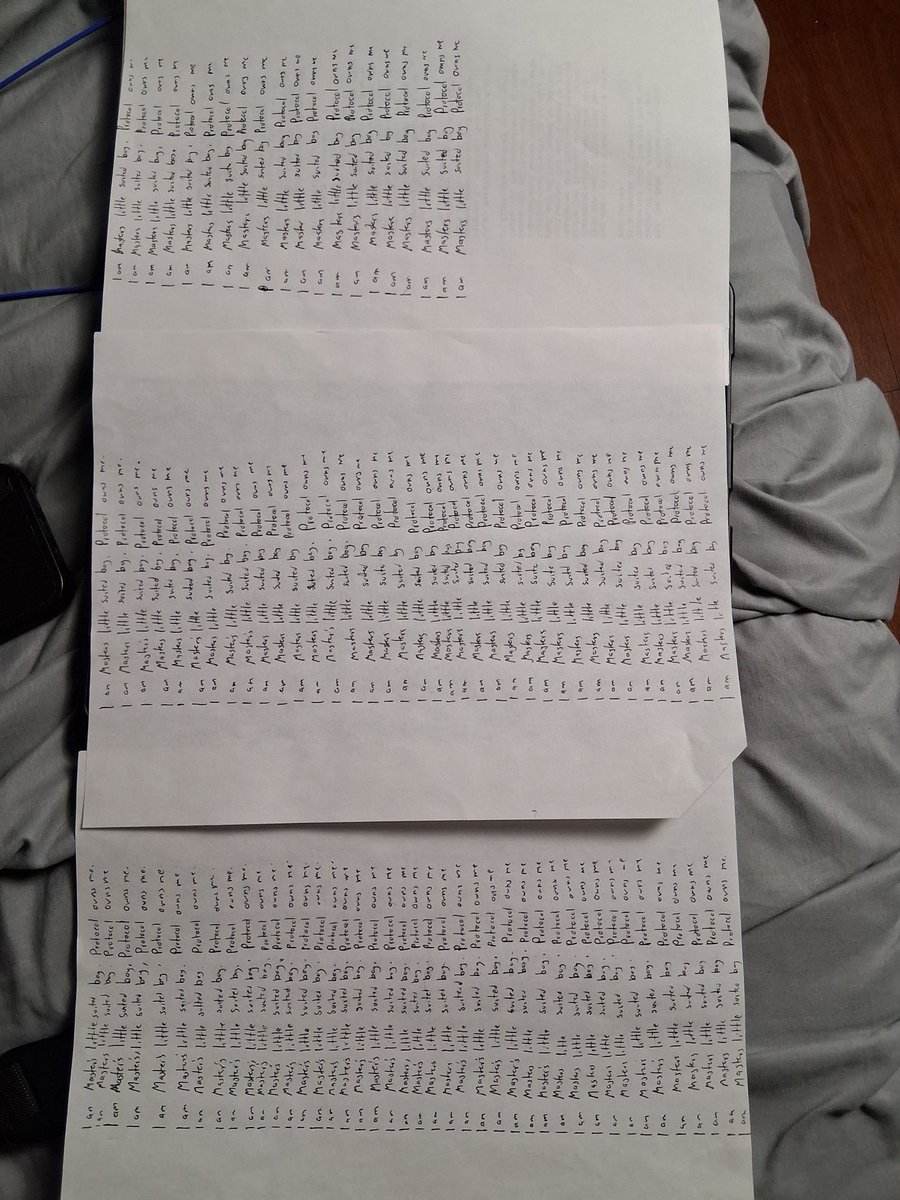 I am Masters little suited boy. Protocol owns me.
I am Masters little suited boy. Protocol owns me
I am Masters little suited boy. Protocol owns me.
I am Master's little suited boy. Protocol owns me.
I am Master's little suited boy. Protocol owns me
I am Masters little suited boy. Protocol owns me.
I am Master's little suited boy. Protocol owns me.
I am Masters little suited boy. Protocol owns me.
I am Masters little suited boy. Protocol owns me.
I am Masters little suited boy. Protocol owns me.
I am Masters little suited boy. Protocol owns me.
I am Masters little suited boy. Protocol owns me.
I am Masters little suited boy. Protocol owns me.
I am Masters little suited boy. Protocol owns me.
I am Masters little suited boy. Protocol owns me.
I am Masters little suited boy. Protocol owns me.
I am Masters little suited boy. Protocol owns me
I am Masters little suited boy. Protocol owns me
I am Masters little suited boy. Protocol owns me
I am Masters little suited boy. Protocol owns me
I am Masters little suited boy. Protocol owns me
I am Masters little suited boy. Protocol owns me
I am Masters little suited boy. Protocol owns me
I am Masters little suited boy. Protocol owns me
I am Masters little suited boy. Protocol owns me
I am Masters little suited boy. Protocol owns me
I am Masters little suited boy. Protocol owns me
I am Masters little suited boy. Protocol owns me
I am Masters little suited boy. Protocol owns me
I am Masters little suited boy. Protocol owns me
I am Masters little suited boy. Protocol owns me
I am Masters little suited boy. Protocol owns me
I am Masters little suited boy. Protocol owns me
I am Masters little suited boy. Protocol owns me
I am Masters little suited boy. Protocol owns me
I am Masters little suited boy. Protocol owns me
I am Masters little suited boy. Protocol owns me
I am Masters little suited boy Protocol owns me
I am Masters little suited boy Protocol owns me
I am Masters little suited boy Protocol owns me
I am Masters little suited boy Protocol owns me
I am Masters little suited boy Protocol owns me.
I am Masters little suited boy. Protocol owns me.
I am Masters little suited boy. Protocol owns me.
I am Masters little suited boy. Protocol owns me.
I am Masters little suited boy. Protocol owns me
I am Masters little suited boy. Protocol owns me
I am Masters little suited boy. Protocol owns me
I am Masters little suited boy. Protocol owns me
I am Masters little suited boy Protocol owns me
I am Masters little suited boy Protocol owns me
I am Masters little suited boy Protocol owns me
I am Masters little suited boy Protocol owns me
I am Masters little suited boy Protocol owns me
I am Masters little suited boy. Protocol owns me
I am Masters little suited boy. Protocol owns me
I am Masters little suited boy. Protocol owns me
I am Masters little suited boy Protocol owns me
I am Masters little suited boy Protocol owns me
I am Masters little suited boy Protocol owns me
I am Masters little suited boy Protocol owns me
I am Masters little suited boy Protocol owns me
I am Masters little suited boy Protocol owns me
I am Masters little suited boy Protocol owns me
I am Masters little suited boy Protocol owns me
I am Masters little suited boy Protocol owns me
I am Masters little suited boy Protocol owns me
I am Masters little suited boy Protocol owns me
I am Masters little suited boy Protocol owns me
I am Masters little suited boy Protocol owns me
I am Masters little suited boy Protocol owns me
I am Masters little suited boy Protocol owns me
I am Masters little suited boy Protocol owns me
I am Masters little suited boy Protocol owns me
I am Masters little suited boy Protocol owns me
I am Masters little suited boy Protocol owns me
I am Masters little suited boy Protocol owns me
I am Masters little suited boy Protocol owns me
I am Masters little suited boy Protocol owns me
I am Masters little suited boy Protocol owns me
I am Masters little suited boy. Protocol owns me
I am Masters little suited boy. Protocol owns me
I am Masters little suited boy. Protocol owns me
I am Masters little suited boy. Protocol owns me
I am Masters little suited boy. Protocol owns me
I am Masters little suited boy. Protocol owns me
I am Masters little suited boy Protocol owns me
I am Masters little suited boy Protocol owns me
I am Masters little suited boy Protocol owns me
I am Masters little suited boy Protocol owns me
I am Masters little suited boy Protocol owns me
I am Masters little suited boy Protocol owns me
I am Masters little suited boy Protocol owns me
I am Masters little suited boy Protocol owns me
I am Masters little suited boy Protocol owns me
I am Masters little suited boy Protocol owns me
I am Masters little suited boy Protocol owns me
I am Masters little suited boy Protocol owns me
I am Masters little suited boy Protocol owns me
I am Masters little suited boy Protocol owns me